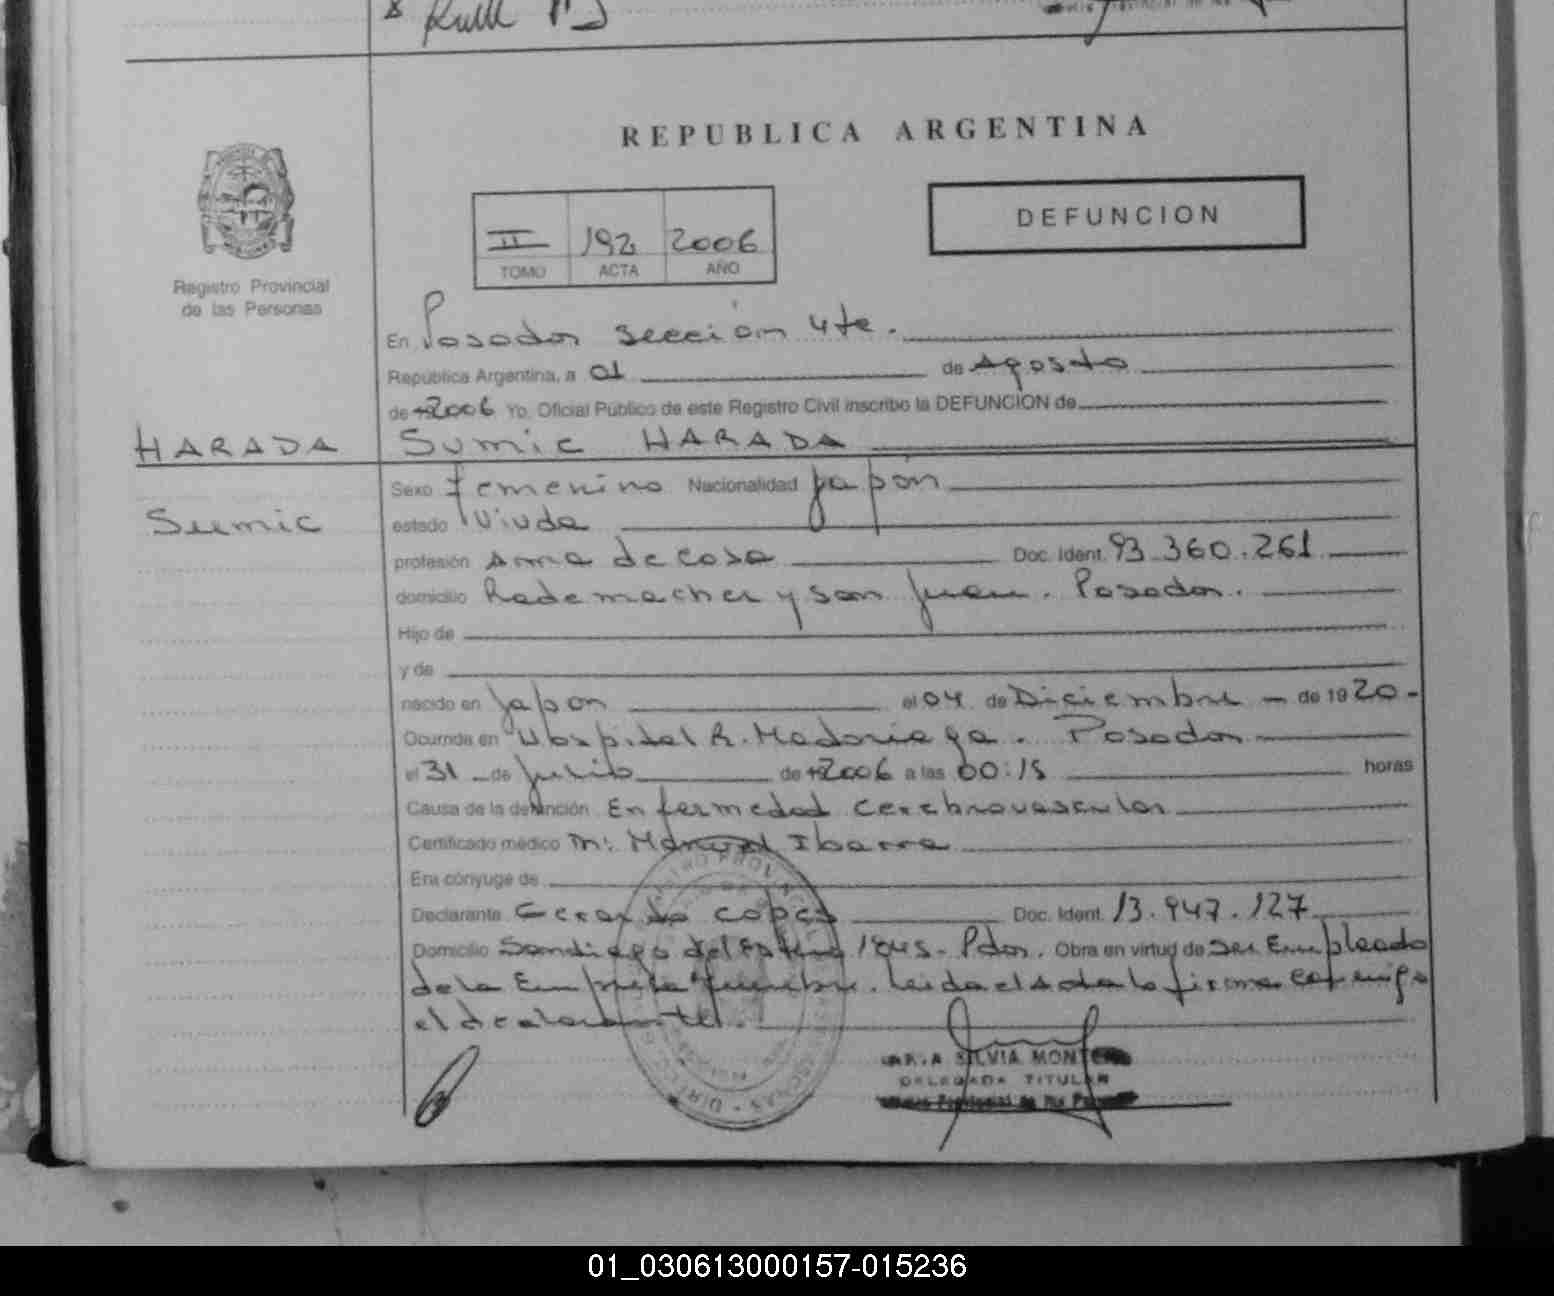 REPUBLICA ARGENTINA
DEFUNCION
II 192 2006
TOMO ACTA AÑO
Registro Provincial
de las Personas
En Posadas sección 4ta.
República Argentina, a 01 de Agosto
de 2006 Yo, Oficial Público de este Registro Civil inscribo la DEFUNCION de
HARADA Sumic HARADA
Sexo Femenino Nacionalidad Japón
Sumic
estado Viuda
profesión Ama de casa Doc. Ident. 93.360.261
domicilio Rademacher y san Juan. Posadas.
Hijo de
y de
nacido en Japon el 04 de Diciembre de 1920
Ocurrida en Hospital R. Madariaga. Posadas
el 31 de Julio de 2006 a las 00:15 horas
Causa de la defunción Enfermedad cerebrovascular
Certificado médico M: Ibarra
Era cónyuge de
Declarante Gerardo Doc. Ident. 13.947.127
Domicilio Santiago del Estero 1845. Pdas. Obra en virtud de ser Empleado
de la Empresa Funebre. Leida el Acta la firma conmigo
el declarante.
SILVIA
DELEGADA TITULAR
01_030613000157-015236